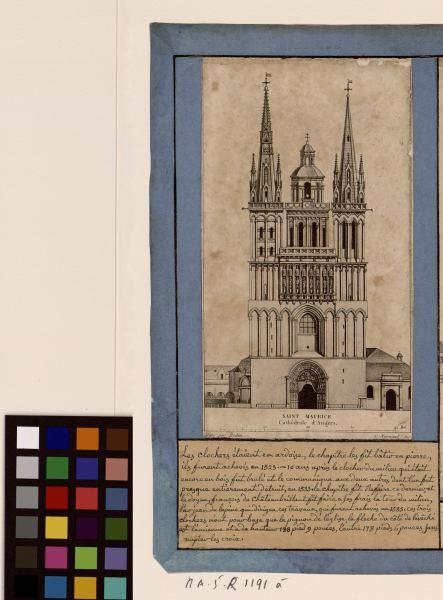 SAINT MAURICE
Cathédrale d'Angers.
Les clochers étaient en ardoise, le chapitre les fit bâtir en pierre,
ils furent achevés en 1523 — 10 ans après le clocher du milieu qui était
encore en bois fut brulé et le communiqua aux deux autres dont l'un fut
presque entièrement détruit, en 1535 le chapitre fit refaire ce dernier et
le doyen, françois de Châteaubriant fit faire à ses frais la tour du milieu,
jean de l'épine qui dirigea ces travaux, qui furent achevés en
clochers n'ont pour base que le pignon de l'église, la flèche du côté de l'évêché
est l'ancienne et a de hauteur pieds 9 pouces, l'autre pieds 6 pouces sans
compter les croix.
MA.5.R 1191 a